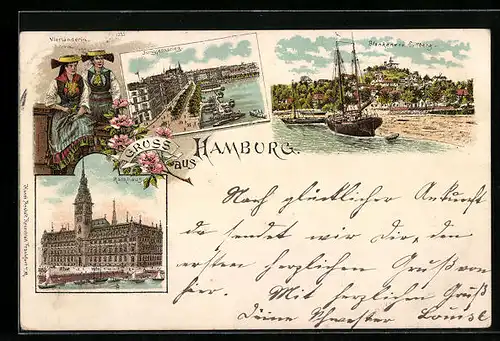 Vierländerin.
Jungfernstieg
Blankenese Süllberg.
GRUSS
AUS
HAMBURG.
Rathhaus
Nach glücklicher Ankunft
da sendet wir Dir, den
ersten herzlichen Gruß von
hier. Mit herzlichen Gruß
Deine Schwester Louise